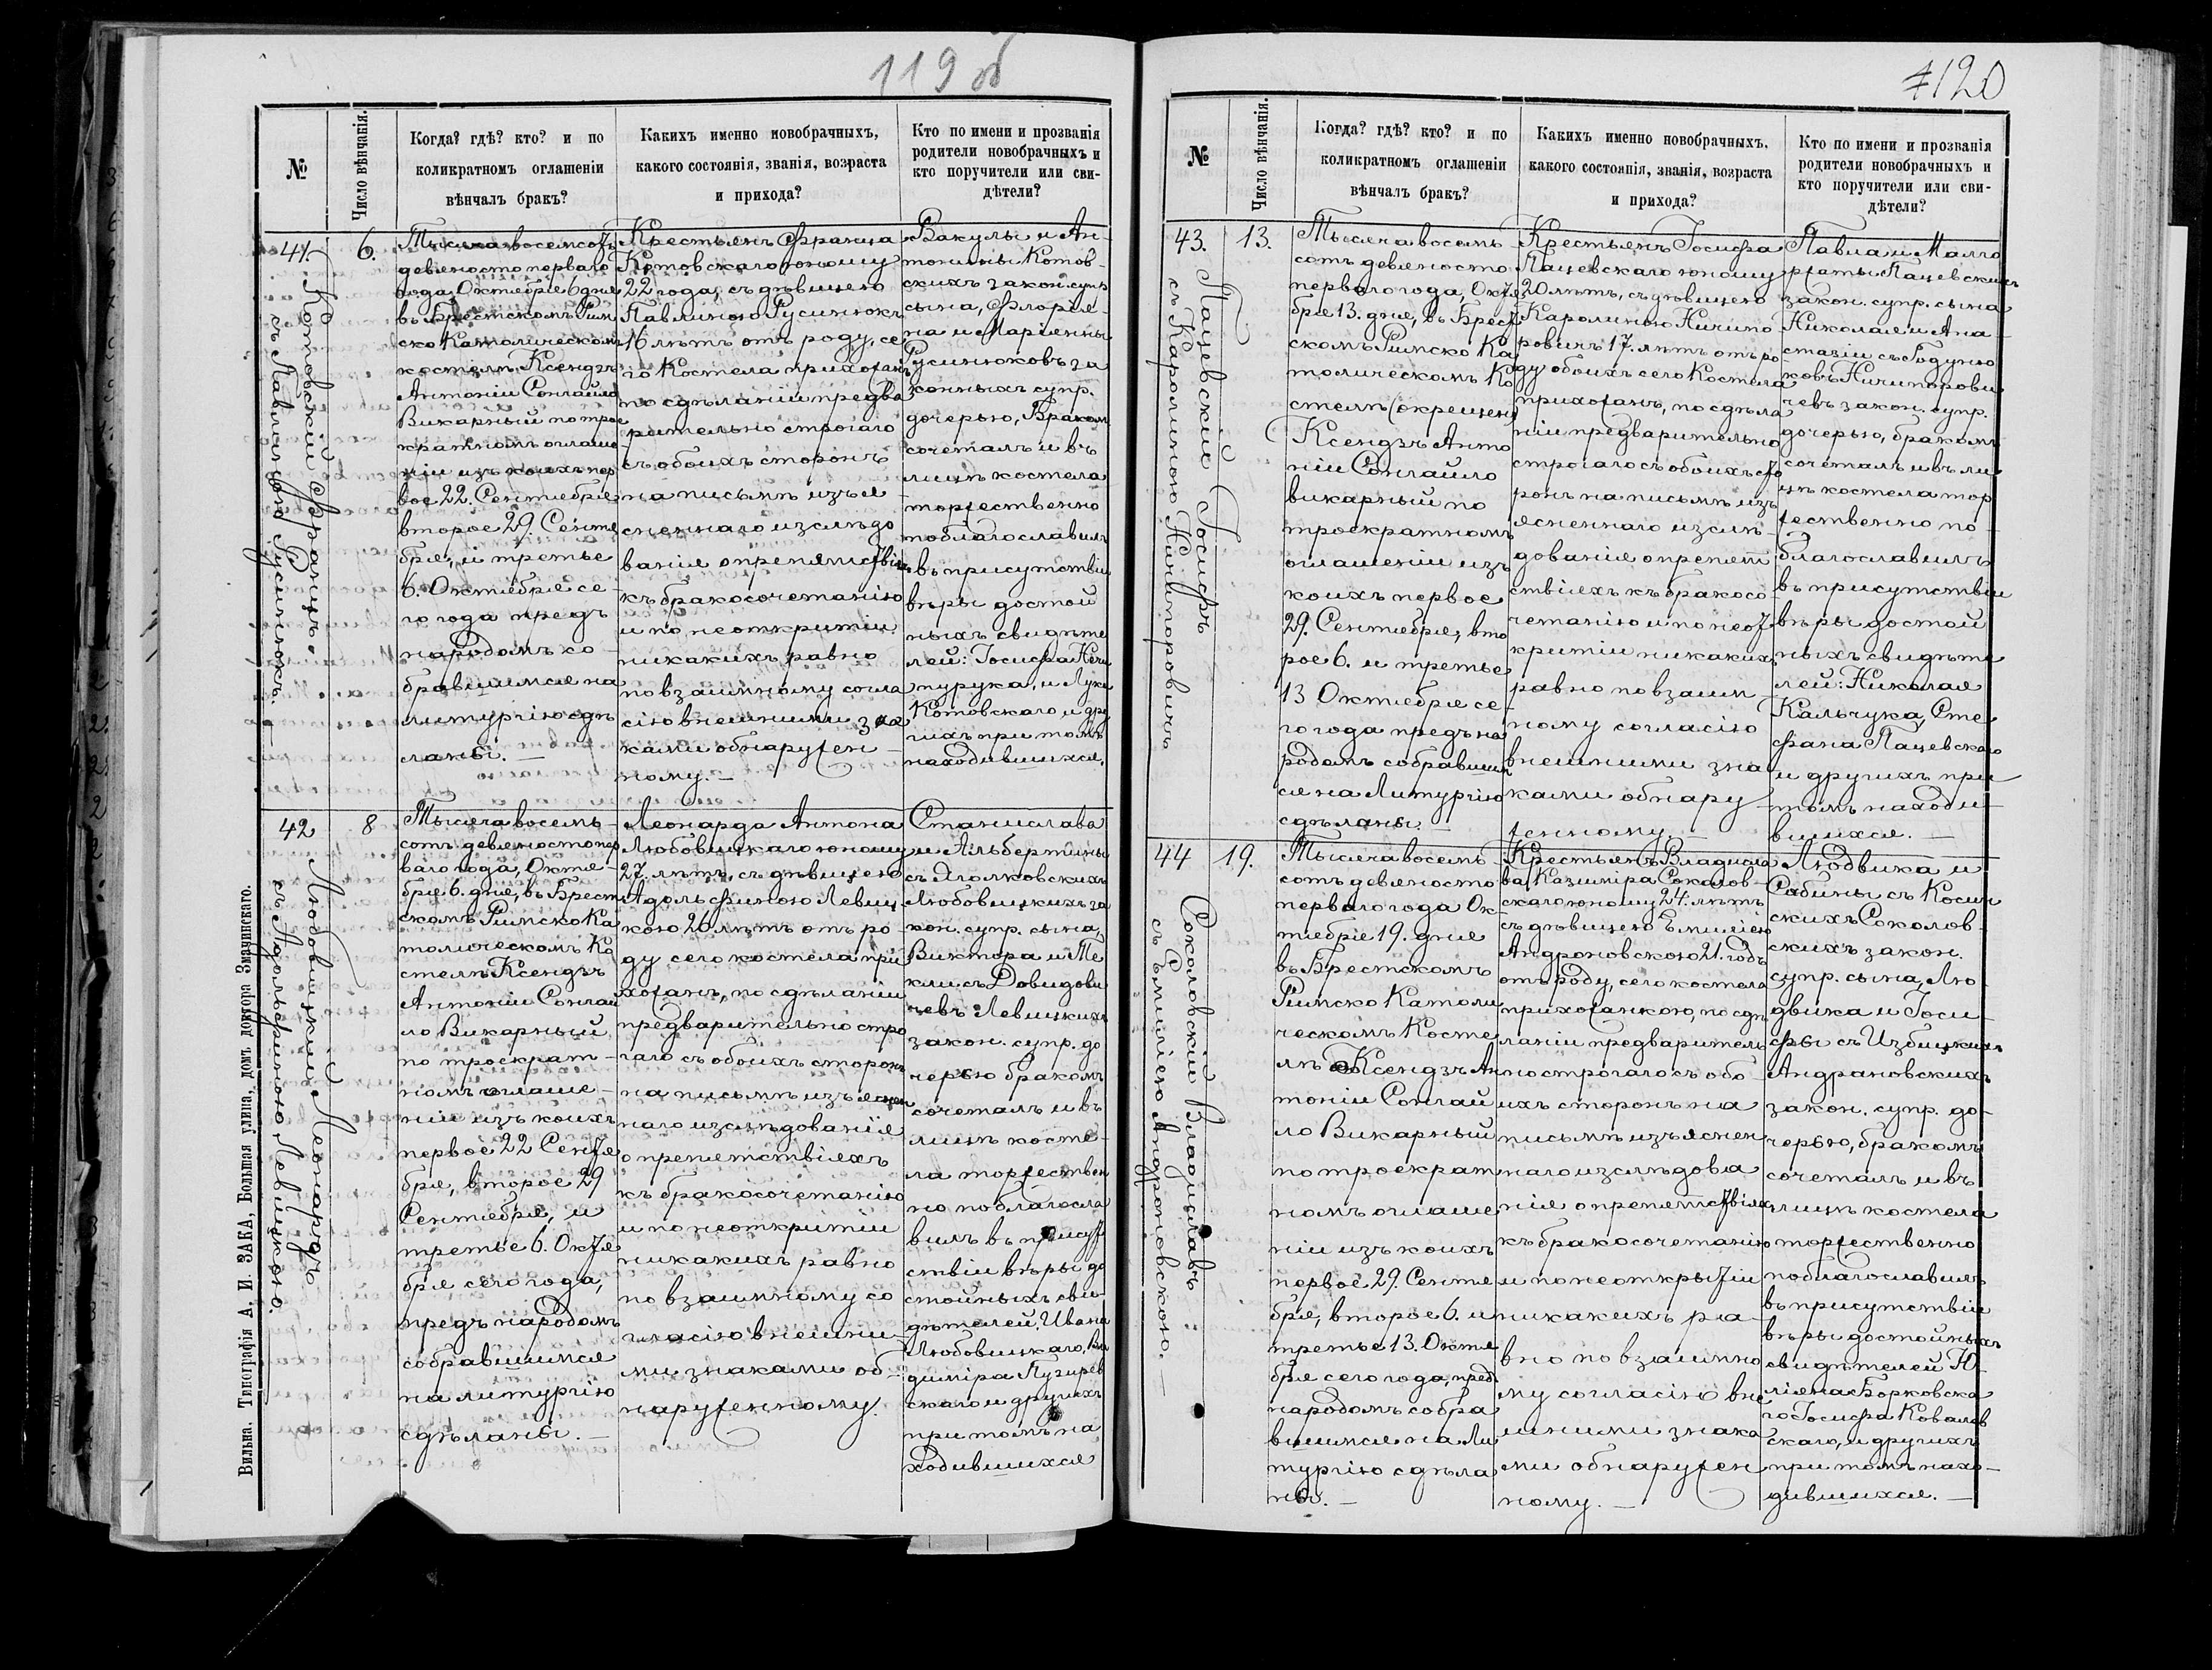 119 об
№
Число вѣнчанія.
Когда? гдѣ? кто? и по
коликратномъ оглашеніи
вѣнчалъ бракъ?
Какихъ именно новобрачныхъ,
какого состоянія, званія, возраста
и прихода?
Кто по имени и прозванія
родители новобрачныхъ и
кто поручители или сви-
дѣтели?
41.
Котовскій Францъ
съ Павлиною Русинюкъ.
6.
Тысяча восемсотъ
девяносто перваго
года, Октября 6 дня
въ Брестскомъ Рим
ско Католическомъ
костелѣ Ксендзъ
Антоній Сонгайло
Викарный по трое
кратномъ оглаше
ніи изъ коихъ пер
вое 22. Сентября,
второе 29 Сентя
бря, и третье
6. Октября се
го года предъ
народомъ со-
бравшимся на
литургію сдѣ
ланы. —
Крестьянъ Франца
Котовскаго юношу
22 года, съ дѣвицею
Павлиною Русинюкъ
16 лѣтъ отъ роду, се
го Костела прихожанъ
по сдѣланіи предва
рительно строгаго
съ обоихъ сторонъ
на письмѣ изъя
сненнаго изслѣдо
ванія о препятствіяхъ
къ бракосочетанію
и по неоткритіи
никакихъ равно
по взаимному согла
сію внешними зна
ками обнаружен-
ному. —
Вакулы и Ан-
тонины Котов-
скихъ закон. супр.
сына, Флорія-
на и Маріянны
Русинюковъ за
конныхъ супр.
дочерью, Бракомъ
сочеталъ и въ
лицѣ костела
торжественно
поблагославилъ
въ присутствіи
вѣры достой
ныхъ свидѣте
лей: Іосифа Ничи
пурука, и Луки
Котовскаго, и дру
гихъ при томъ
находившихся.
42
Любовицкій Леонардъ
съ Адольфиною Левицкою.
8
Тысяча восемь-
сотъ девяносто пер
ваго года, Октя-
бря 6. дня, въ Брест
скомъ Римско Ка
толическомъ Ко
стелѣ Ксендзъ
Антоній Сонгай
ло Викарный
по троекрат-
номъ оглаше-
ніи изъ коихъ
первое 22 Сентя
бря, второе 29
Сентября, и
третье 6. Октя
бря сего года,
предъ народомъ
собравшимся
на литургію
сдѣланы. —
Леонарда Антона
Любовицкаго юношу
27. лѣтъ, съ дѣвицею
Адольфиною Левиц
кою 26 лѣтъ отъ ро-
ду сего костела при
хожанъ, по сдѣланіи
предварительно стро
гаго съ обоихъ сторонъ
на письмѣ изъяснен
наго изслѣдованія
о препятствіяхъ
къ бракосочетанію
и по неоткритіи
никакихъ равно
по взаимному со
гласію внешни-
ми знаками об-
наруженному.
Станислава
и Альбертины
съ Яголковскихъ
Любовицкихъ за
кон. супр. сына,
Виктора и Те
кли съ Довидови
чевъ Левицкихъ
закон. супр. до
черью бракомъ
сочеталъ и въ
лицѣ косте-
ла торжествен
но поблагосла
вилъ въ присут
ствіи вѣры до
стойныхъ сви-
дѣтелей: Ивана
Любовицкаго, Вла
диміра Пузырев
скаго и другихъ
при томъ на
ходившихся
Вильна. Типографія А. И. ЗАКА, Большая улица, домъ доктора Змачинскаго.
120
№
Число вѣнчанія.
Когда? гдѣ? кто? и по
коликратномъ оглашеніи
вѣнчалъ бракъ?
Какихъ именно новобрачныхъ,
какого состоянія, званія, возраста
и прихода?
Кто по имени и прозванія
родители новобрачныхъ и
кто поручители или сви-
дѣтели?
43.
Пацевскій Іосифъ
съ Каролиною Ничипоровичъ
13.
Тысяча восемь
сотъ девяносто
перваго года, Октя
бря 13. дня, въ Брест
скомъ Римско Ка
толическомъ Ко
стелѣ (окрещен)
Ксендзъ Анто
ній Сонгайло
викарный по
троекратномъ
оглашеніи изъ
коихъ первое
29. Сентября, вто
рое 6. и третье
13 Октября се-
го года предъ на
родомъ собравшим
ся на Литургію
сдѣланы. —
Крестьянъ Іосифа
Пацевскаго юношу
20 лѣтъ, съ дѣвицею
Каролиною Ничипо
ровичъ 17. лѣтъ отъ ро
ду обоихъ сего Костела
прихожанъ, по сдѣла
ніи предварительно
строгаго съ обоихъ сто
ронъ на письмѣ изъ
ясненнаго изслѣ-
дованія о препят
ствіяхъ къ бракосо
четанію и по неот
критіи никакихъ
равно по взаим-
ному согласію
внешними зна
ками обнару-
женному. —
Павла и Малго
ржаты Пацевскихъ
закон. супр. сына
Николая и Ана
стазіи съ Годуню
ковъ Ничипорови
чевъ закон. супр.
дочерью, бракомъ
сочеталъ и въ ли
цѣ костела тор
жественно по-
благославилъ
въ присутствіи
вѣры достой
ныхъ свидѣте
лей: Николая
Кальчука, Сте
фана Пацевскаго
и другихъ при
томъ находи-
вшихся. —
44
Соколовскій Владиславъ
съ Эмиліею Андроновскою. —
19.
Тысяча восемь-
сотъ девяносто
перваго года Ок-
тября 19. дня
въ Брестскомъ
Римско Католи
ческомъ Косте
лѣ Ксендзъ Ан
тоній Сонгай
ло Викарный
по троекрат
номъ оглаше
ніи изъ коихъ
первое 29. Сентя
бря, второе 6. и
третье 13. Октя
бря сего года, предъ
народомъ собра
вшимся на Ли
тургію сдѣла
ны. —
Крестьянъ Владисла
ва Казиміра Соколов-
скаго юношу 24. лѣтъ
съ дѣвицею Емиліею
Андроновскою 21. годъ
отъ роду, сего костела
прихожанкою, по сдѣ
ланіи предваритель
но строгаго съ обо-
ихъ сторонъ на
письмѣ изъяснен
наго изслѣдова
нія о препятствіяхъ
къ бракосочетанію
и по неоткрытіи
никакихъ ра-
вно по взаимно
му согласію вне
шними знака
ми обнаружен
ному. —
Людвика и
Сабины съ Косин
скихъ Соколов-
скихъ закон.
супр. сына, Лю
двика и Іоси-
фы съ Избицкихъ
Андрановскихъ
закон. супр. до-
черью, бракомъ
сочеталъ и въ
лицѣ костела
торжественно
поблагославилъ
въ присутствіи
вѣры достойныхъ
свидѣтелей Ю-
ліяна Борковска
го Іосифа Ковалев
скаго, и другихъ
при томъ нахо-
дившихся. —